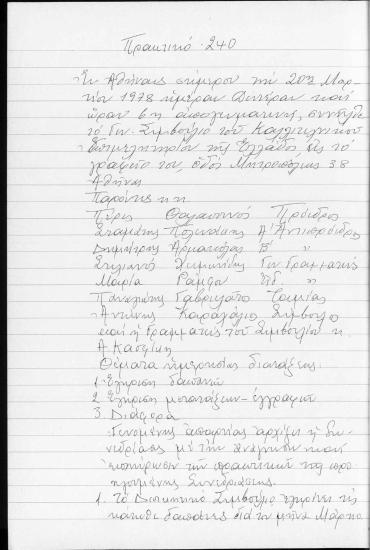 Πρακτικό 240
Ἐν Ἀθήναις σήμερον τήν 20ή Μαρ-
τίου 1978 ἡμέραν Δευτέραν καί
ὥραν 6 η ἀπογευματινή, συνῆλθε
τό Διοικ. Συμβούλιο τοῦ Καλλιτεχνικοῦ
Ἐπιμελητηρίου τῆς Ἑλλάδος εἰς τό
γραφεῖο του, ὁδός Μητροπόλεως 38
Ἀθήνα
Παρόντες κ κ
Πάρις Πρόεδρος
Σταμάτης Πολενάκης Α΄ Ἀντιπρόεδρος
Δημήτρης Ἀρμακόλας Β΄ "
Στυλιανός Γεν. Γραμματεύς
Μαρία Εἰδ. "
Παναγιώτης Ταμίας
Ἀντώνης Καραχάλιος Σύμβουλος
καί ἡ Γραμματεύς τοῦ Συμβουλίου κ.
Α.
Θέματα ἡμερησίας διατάξεως:
1. Ἔγκριση δαπανῶν
2. Ἔγκριση μετατάξεων - ἐγγραφῶν
3. Διάφορα
Γενομένης ἀπαρτίας ἀρχίζει ἡ συ-
νεδρίασις μέ τήν ἀνάγνωσιν καί
ἐπικύρωσιν τῶν πρακτικῶν τῆς προ
ηγουμένης Συνεδριάσεως.
1. Τό Διοικητικό Συμβούλιο ἐγκρίνει τίς
κάτωθι δαπάνες διά τόν μῆνα Μάρτιο